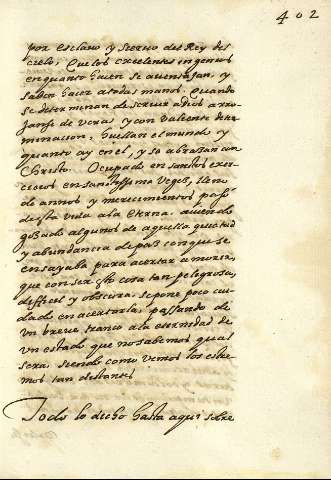 402
por esclavo y siervo del Rey del
cielo, Que los excelentes ingenios
en quanto hacen se aventajan, y
saben hacer a todas manos. Quando
se determinan de servir a dios arro
janse de veras, y con valiente deter
minacion, huellan el mundo y
quanto ay en el, y se abrazan con
Christo. Ocupado en sanctos exer
cicios en sanctissima vegez, lleno
de annos y merecimientos passó
desta vida a la eterna, aviendo
gozado algunos de aquella quietud
y abundancia de paz con que se
ensayaba para acertar a morir,
que con ser esta cosa tan peligrosa,
dificil y obscura, se pone poco cui
dado en acertarla, passando de
un breve tranco a la eternidad de
un estado que no sabemos qual
sera, siendo como vemos los estre
mos tan distantes
Todo lo dicho hasta aqui sobre